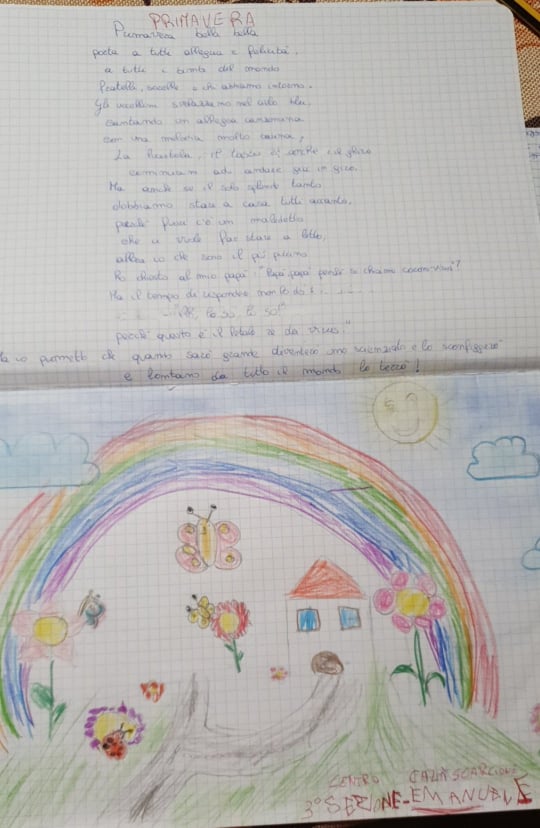 PRIMAVERA
Primavera bella bella
porta a tutti allegria e felicità,
a tutti i bimbi del mondo
fratelli, sorelle e chi abbiamo intorno.
Gli uccellini svolazzano nel cielo blu,
cantando un allegra canzoncina
con una melodia molto carina,
La farfalla, il e anche il ghiro
cominciam ad andare giù in giro.
Ma anche se il sole splende tanto
dobbiamo stare a casa tutti accanto,
perché fuori c'è un maledetto
che ci vuole far stare a letto,
allora io che sono il più piccino
ho chiesto al mio papà: "Papà, papà perché si chiama corona-virus"?
Ma il tempo di rispondere non le do e
lo so, lo so!"
perché questo è il re dei virus."
Ma io prometto che quando sarò grande diventerò uno scienziato e lo sconfiggerò
e lontano da tutto il mondo lo terrò!
CENTRO
3° SEZIONE - EMANUELE